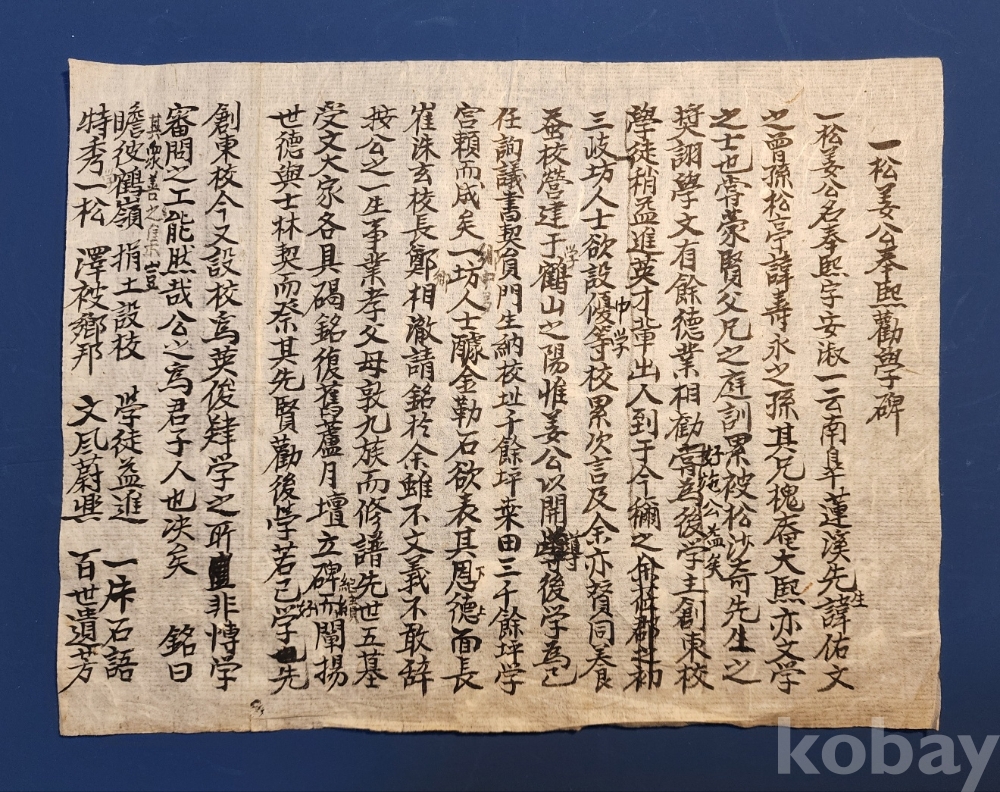 一松姜公奉熙勸學碑
一松姜公名奉熙字安淑一云南阜蓮溪先生諱佑文
之曾孫松亭諱壽永之孫其兄槐庵大熙亦文學
之士也嘗蒙賢父兄之庭訓累被松沙奇先生之
奬詡學文有餘德業相勸好施公益矣嘗為後学主創東校
學徒稍益進英才輩出人到于今稱之余莅郡之初
三歧坊人士欲設優等中学校累次言及余亦賛同養
蚕学校營建于鶴山之陽惟姜公以開導後学為己
任詢議書契員門生納校址千餘坪葉田三千餘坪学
宮頼而成矣一坊人士醵金勒石欲表其恩德面長
崔洙玄校長鄭相澈請銘於余雖不文義不敢辞
按公之一生事業孝父母敦九族而修譜先世五墓
受文大家各具碣銘復舊蘆月壇立碑而闡揚
世德與士林契而奈其先賢勸後学若己学先
創東校今又設校為英俊肄学之所非博学
審問之工能然哉公之為君子人也决矣 銘曰
瞻彼鶴嶺 捐土設校 学徒益進 一片石語
特秀一松 澤被鄉邦 文風蔚興 百世遺芳
kobay